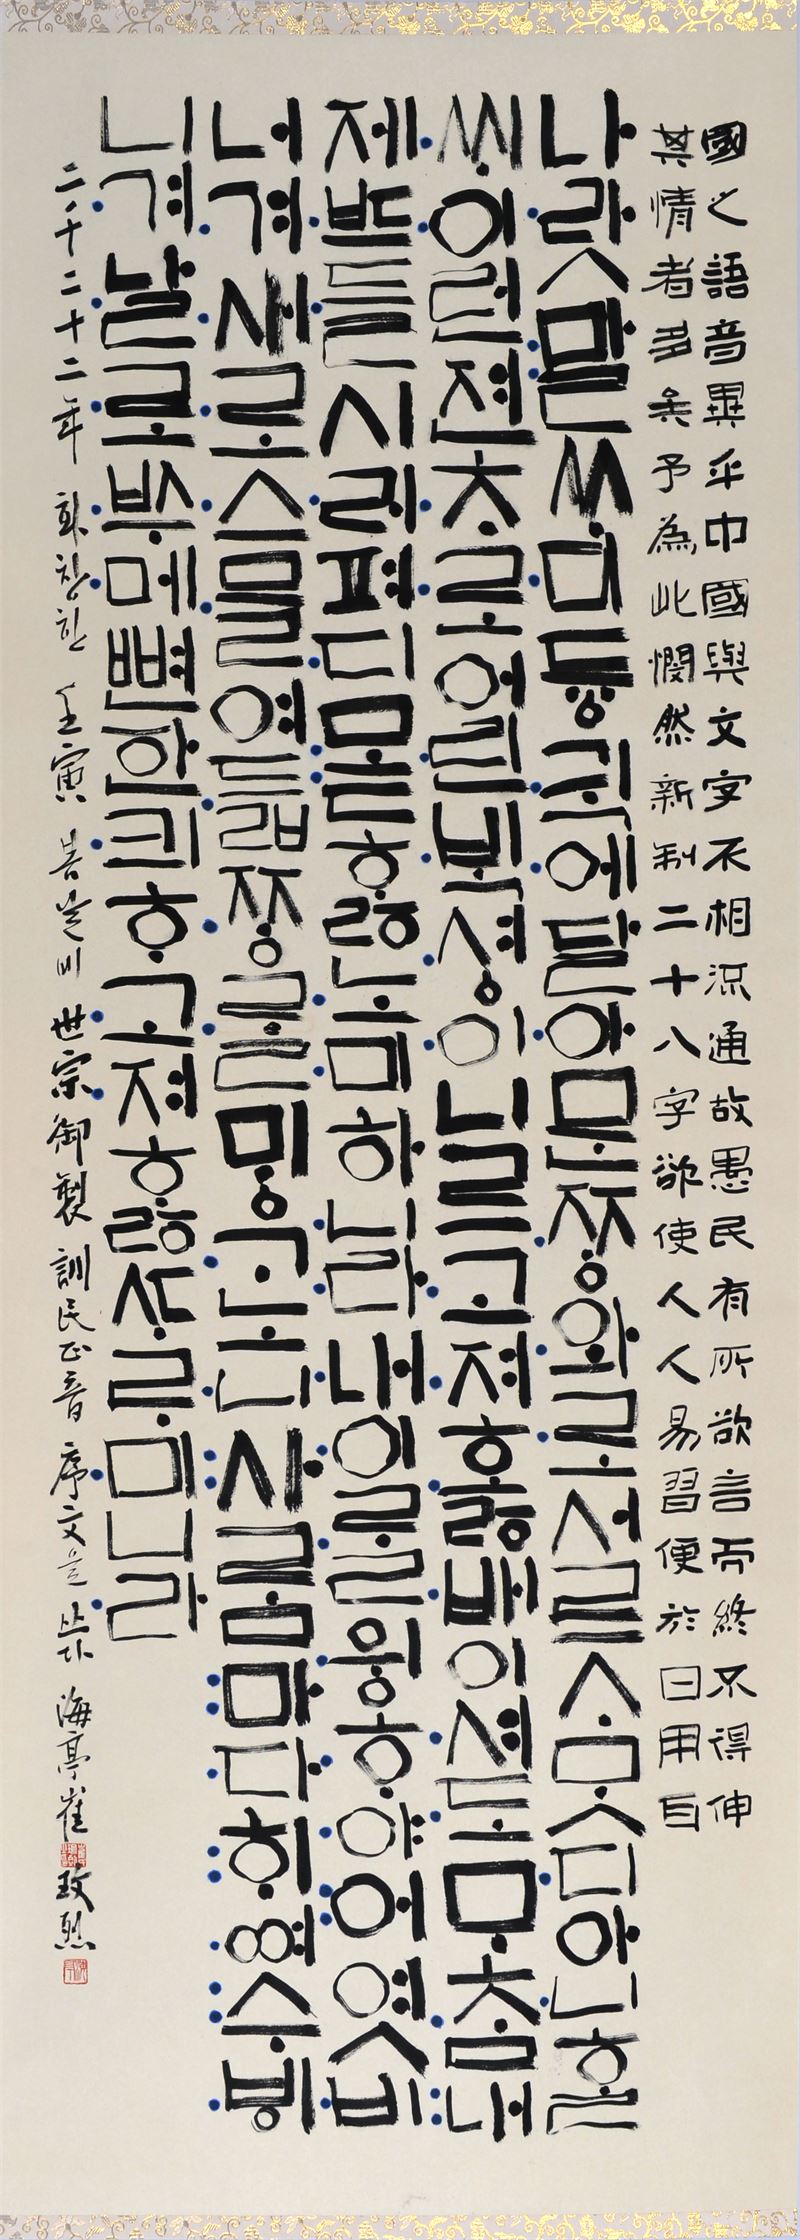 國之語音異乎中國與文字不相流通故愚民有所欲言而終不得伸
其情者多矣予為此憫然新制二十八字欲使人人易習便於日用耳
나랏말ᄊᆞ미듕귁에달아문ᄍᆞᆼ와로서르ᄉᆞᄆᆞᆺ디아니ᄒᆞᆯ
ᄊᆡ이런젼ᄎᆞ로어린ᄇᆡᆨ셩이니르고져ᄒᆞᇙ배이셔도ᄆᆞᄎᆞᆷ내
제ᄠᅳ들시러펴디몯ᄒᆞᇙ노미하니라내이ᄅᆞᆯ윙ᄒᆞ야어엿비
너겨새로스믈여듧ᄍᆞᆼᄅᆞᆯᄆᆡᇰᄀᆞ노니사ᄅᆞᆷ마다ᄒᆡᅇᅧ수ᄫᅵ
니겨날로ᄡᅮ메뼌ᅙᅡᆫ킈ᄒᆞ고져ᄒᆞᇙᄯᆞᄅᆞ미니라
二千二十二年 화창한 壬寅 봄날에 世宗御製 訓民正音 序文을 쓰다 海亭 崔玟烈